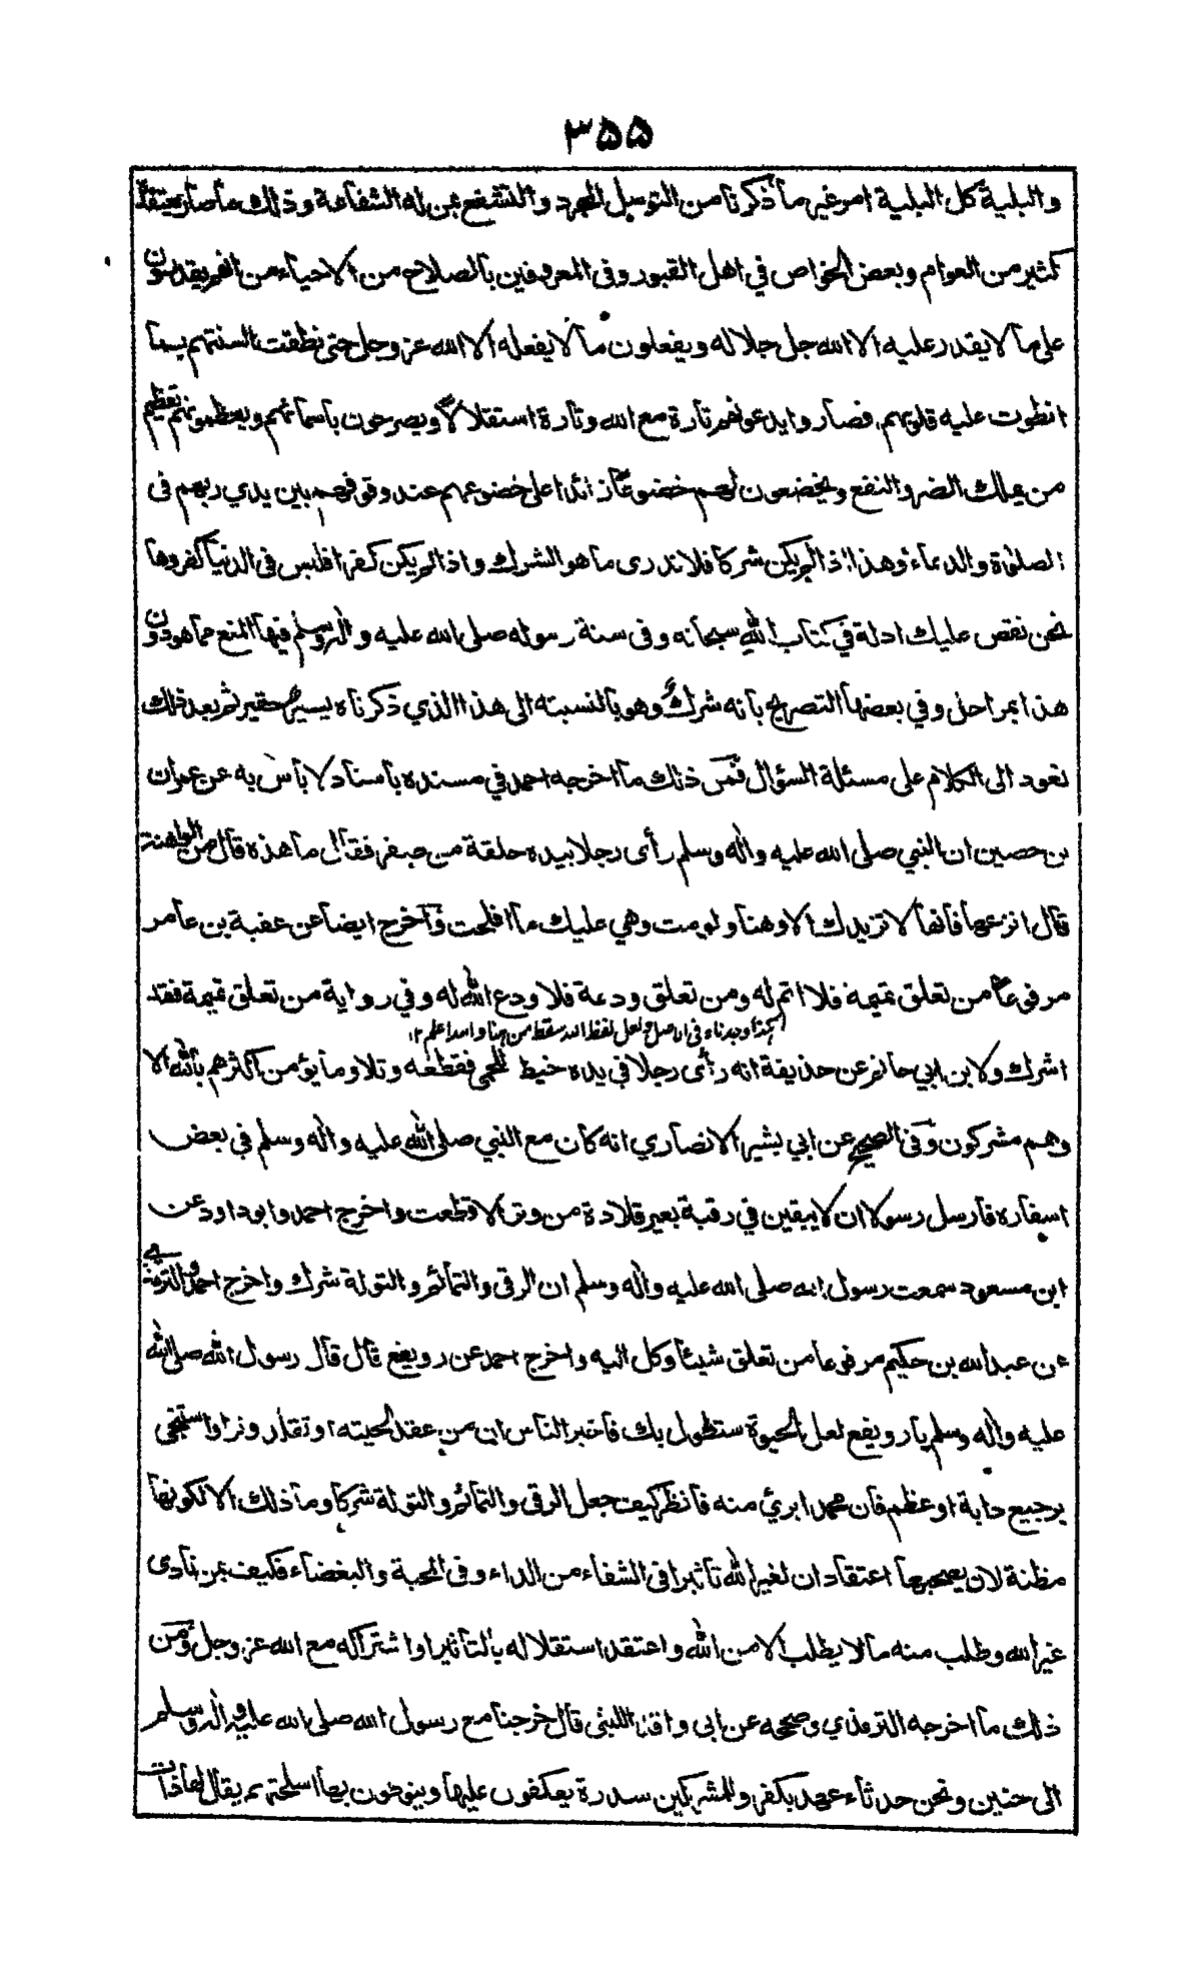 ٣٥٥
والبلية كل البلية امر غير ما ذكرنا من التوسل المجرد والتشفع بمن له الشفاعة وذلك ما صار يعتقده
كثير من العوام وبعض الخواص في اهل القبور وفي المعروفين بالصلاح من الاحياء من انهم يقدرون
على ما لا يقدر عليه الا الله جل جلاله ويفعلون ما لا يفعله الا الله عز وجل حتى نطقت السنتهم بما
انطوت عليه قلوبهم فصاروا يدعونهم تارة مع الله وتارة استقلالا ويصرحون باسمائهم ويعظمونهم تعظيم
من يملك الضر والنفع ويخضعون لهم خضوعا زائدا على خضوعهم عند وقوفهم بين يدي ربهم في
الصلوة والدعاء وهذا اذا لم يكن شركا فلا ندرى ما هو الشرك واذا لم يكن كفرا فليس في الدنيا كفر وها
نحن نقص عليك ادلة في كتاب الله سبحانه وفى سنة رسوله صلى الله عليه واله وسلم فيها المنع مما هو دون
هذا بمراحل وفي بعضها التصريح بانه شرك وهو بالنسبته الى هذا الذي ذكرناه يسير حقير ثم بعد ذلك
نعود الى الكلام على مسئلة السؤال فمن ذلك ما اخرجه احمد في مسنده باسناد لا باس به عن عمران
بن حصين ان النبي صلى الله عليه واله وسلم رأى رجلا بيده حلقة من صفر فقال ما هذه قال من الواهنة
قال انزعها فانها لا تزيدك الا وهنا ولو مت وهي عليك ما افلحت واخرج ايضا عن عقبة بن عامر
مرفوعا من تعلق تميمة فلا اتم له ومن تعلق ودعة فلا ودع الله له وفي رواية من تعلق تميمة فقد
(كذا وجدناه فى الاصل ولعل لفظ الله سقط من هنا والله اعلم ١٢
اشرك ولابن ابي حاتم عن حذيفة انه رأى رجلا في يده خيط للحمى فقطعه وتلا وما يؤمن اكثرهم بالله الا
وهم مشركون وفى الصحيح عن ابي بشير الانصاري انه كان مع النبي صلى الله عليه واله وسلم في بعض
اسفاره فارسل رسولا ان لا يبقين في رقبة بعير قلادة من وتر الا قطعت واخرج احمد وابو داود عن
ابن مسعود سمعت رسول الله صلى الله عليه واله وسلم ان الرقى والتمائم والتولة شرك واخرج احمد والترمذي
عن عبدالله بن حكيم مرفوعا من تعلق شيئا وكل اليه واخرج احمد عن رويفع قال قال رسول الله صلى الله
عليه واله وسلم يا رويفع لعل الحيوة ستطول بك فاخبر الناس ان من عقد لحيته او تقلد وترا او استنجى
برجيع دابة او عظم فان محمدا بريء منه فانظر كيف جعل الرقى والتمائم والتولة شركا وما ذلك الا لكونها
مظنة لان يصحبها اعتقاد ان لغير الله تاثيرا في الشفاء من الداء وفى المحبة والبغضاء فكيف بمن نادى
غير الله وطلب منه ما لا يطلب الا من الله واعتقد استقلاله بالتاثير او اشتراكه مع الله عز وجل ومن
ذلك ما اخرجه الترمذي وصححه عن ابى واقد الليثى قال خرجنا مع رسول الله صلى الله عليه واله وسلم
الى حنين ونحن حدثاء عهد بكفر وللمشركين سدرة يعكفون عليها وينوطون بها اسلحتهم يقال لها ذات